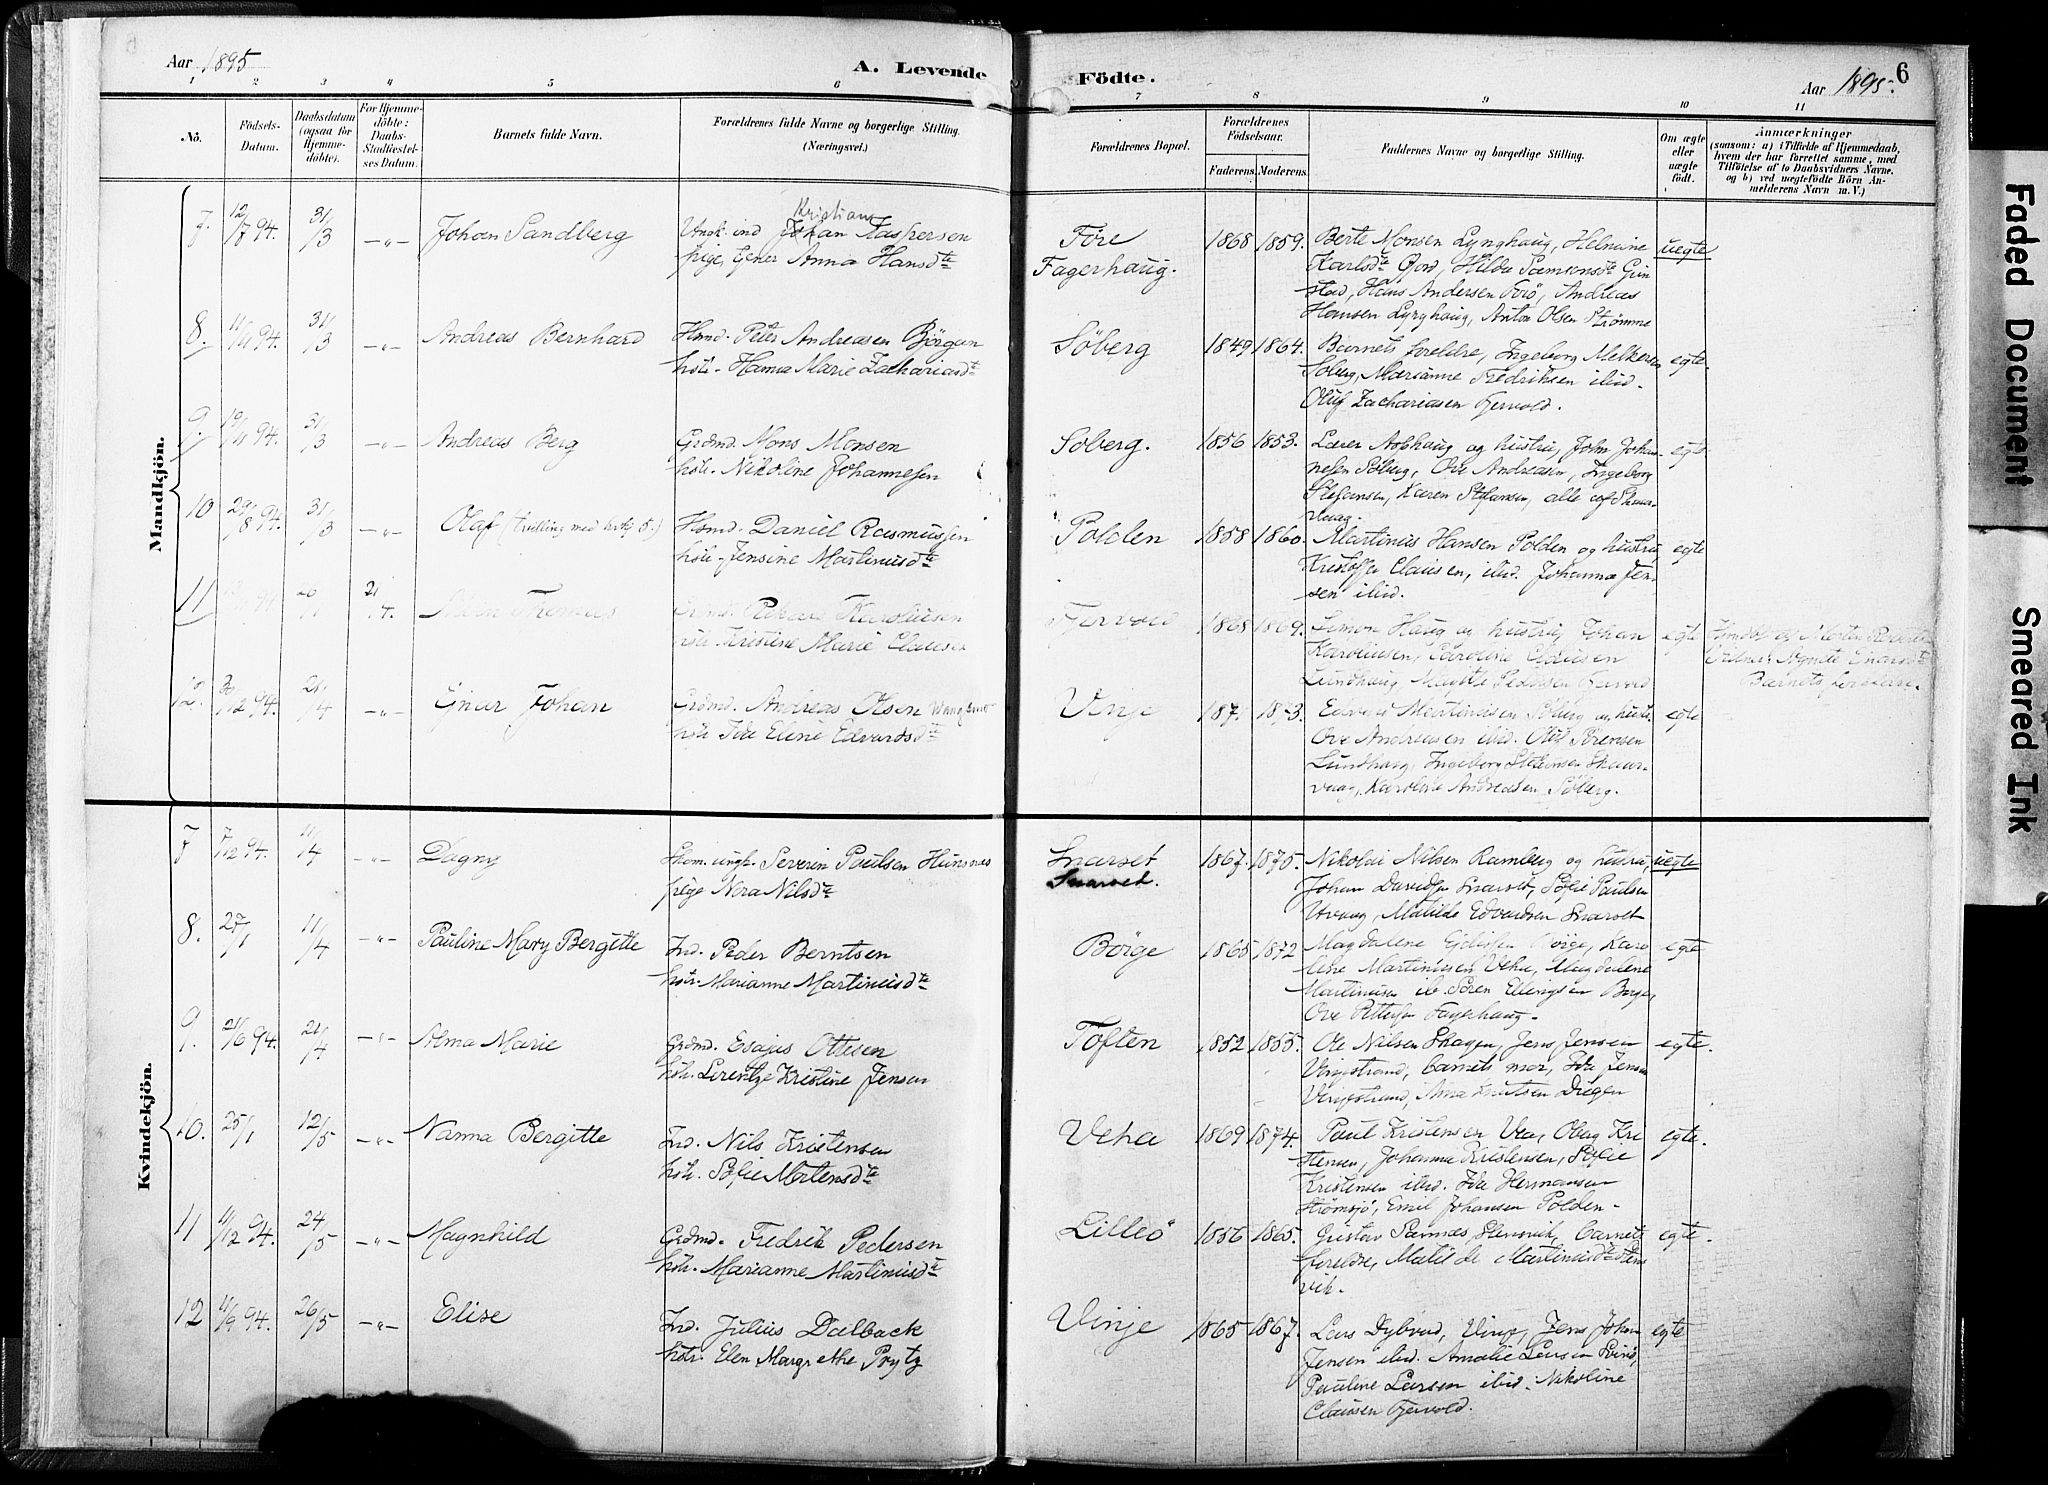 Aar 1895
A. Levende
Födte.
Aar 1895.
6
1 2 3 4 5 6 7 8 9 10 11
No.
Födsels-
Datum.
Daabsdatum
(ogsaa for
Hjemme-
döbte).
For Hjemme-
döbte:
Daabs-
Stadfæstel-
ses Datum.
Barnets fulde Navn.
Forældrenes fulde Navne og borgerlige Stilling.
(Næringsvei.)
Forældrenes Bopæl.
Forældrenes
Födselsaar.
Faderens. Moderens.
Faddernes Navne og borgerlige Stilling.
Om ægte
eller
uægte
födt.
Anmærkninger
(saasom: a) i Tilfælde af Hjemmedaab,
hvem der har forrettet samme, med
Tilföielse af to Daabsvidners Navne.
og b) ved uægtefödte Börn An-
melderens Navn m. V.)
Mandkjön.
7. 12/7 94. 31/3 -"- Johan Sandberg
Kristian
Ungk. ind Johan Kaspersen
pige, Ejner Anna Hansdtr
Føre
Fagerhaug.
1868 1859.
Berte Monsen Lynghaug, Helmine
Karlsdtr Gjord, Hilda Samsonsdtr Grin
stad, Hans Andersen Førö, Andreas
Hansen Lynghaug, Anton Olsen Strømme
uegte
8. 31/3 -"- Andreas Bernhard
Hsmd. Peter Andreasen Björgan
hstr. Hanna Marie Zachariasdtr
Söberg
1849 1864.
Barnets foreldre, Ingeborg Melkersen
Soberg, Marianne Fredriksen ibid.
Oluf Zachariasen Fjervold.
egte.
9. 31/3 -"- Andreas Berg
Grdmd. Mons Monsen
hstr. Nikoline Johannesen
Soberg.
1856 1853.
Lærer Asphaug og hustru, John Johan-
nesen Söberg, Ove Andreasen, Ingeborg
Stefansen, Karen Stefansen, alle af Skaar-
vaag.
egte
10 29/8 94. 31/3 -"- Olaf (tvilling med kvkj 5.)
Hsmd. Daniel Rasmussen
hstr. Jensine Martinusdtr
Polden
1858 1860.
Martinus Hansen Polden og hustru,
Kristoffer Clausen, ibid. Johanna Jen-
sen ibid.
egte
11 Thomas
Grdmd. Karoliusen
hstr. Kristine Marie Clausen
Fjervold
1868 1869.
Simon Haug og hustru, Johan
Karoliusen, Karoline Clausen
Lundhaug,
egte
Barnets foreldre.
12. 30/12 94. 21/4 -"- Ejnar Johan
Grdmd. Andreas Olsen
hstr Ida Eline Edvardsdtr
Vinje
Edvard Martinusen Söberg og hustr.
Ove Andreasen ibid. Olaf Sörensen
Lundhaug, Ingeborg Stefansen Skaar-
vaag, Karoline Andreasen Söberg.
egte
Kvindekjön.
7 7/12 94. 11/4 -"- Dagny
Skom. ungk. Severin Paulsen Hunsnes
pige Nora Nilsdtr
Snarset
Snarset.
1867. 1875.
Nikolai Nilsen Ramberg og hustru,
Johan Davidsen Snarset, Sofie Paulsen
Utvaag, Matilde Edvardsen Snarset
uegte
8. 27/1 11/4 -"- Pauline Mary Bergitte
Ind. Peder Berntsen
hstr. Marianne Martinusdtr
Börge
1865 1872
Magdalene Ejdissen Börge, Karo
line Martinusen Veha, Magdalene
Martinusen ib. Sören Ellingsen Borge,
Ove Pettersen Fagerhaug.
egte
9. 21/6 94. 21/4 -"- Alma Marie
Grdmd. Esajas Ottesen
hstr. Lorentze Kristine Jensen
Toften
1852 1855.
Ole Nilsen Skagen, Jens Jensen
Vinjestrand, barnets mor, Ida Jensen
Vinjestrand, Anna Knutsen Digen
egte.
10. 25/1 12/5 -"- Nanna Bergitte
Ind. Nils Kristensen
hstr. Sofie Mortensdtr
Veha
1869 1874.
Paul Kristensen Vea, Oberg Kri
stensen, Johanna Kristensen, Sofie
Kristensen ibid. Ida Hermansen
Strömsjö, Emil Johansen Polden.
egte.
11 11/12 94. 24/5 -"- Magnhild
Grdmd. Fredrik Pedersen
hstr. Marianne Martinusdtr
Lilleö
1856 1865.
Gustav Sannæs, Stensvik, barnets
foreldre, Matilde Martinusdtr Stens
vik.
egte.
12 11/9 94. 26/5 -"- Elise
Ind. Julius Dalback
hstr. Elen Margrethe Prytz
Vinje
1865 1867.
Lars Dybvad, Vinje, Jens Johan
Jensen ibid. Amalie Larsen Svinö,
Pauline Larsen ibid. Nikoline
Claussen Fjervold.
egte
Faded Document
Smeared Ink